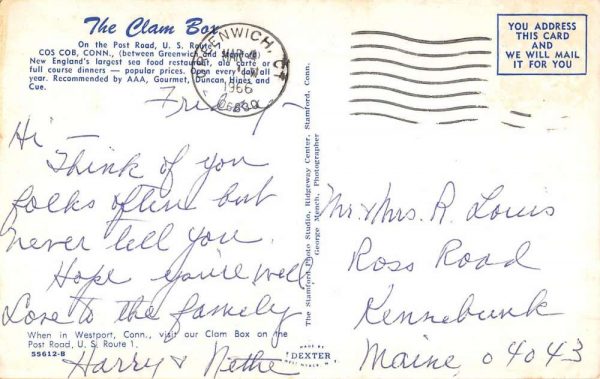 The Clam Box
On the Post Road, U. S. Route
COS COB, CONN., (between Greenwich and Stamford)
New England's largest sea food restaurant, ala carte or
full course dinners — popular prices. Open every day all
year. Recommended by AAA, Gourmet, Duncan Hines and
Cue.
GREENWICH, CT
MAR
1966
YOU ADDRESS
THIS CARD
AND
WE WILL MAIL
IT FOR YOU
Friday —
Hi
Think of you
folks often but
never tell you.
Hope you're well
Love to the family
Harry & Nethe
When in Westport, Conn., visit our Clam Box on the
Post Road, U. S. Route 1.
55612-B
The Stamford Photo Studio, Ridgeway Center, Stamford, Conn.
George Mench, Photographer
MADE BY
DEXTER
Mr. Mrs. R. Louis
Ross Road
Kennebunk
Maine, 04043